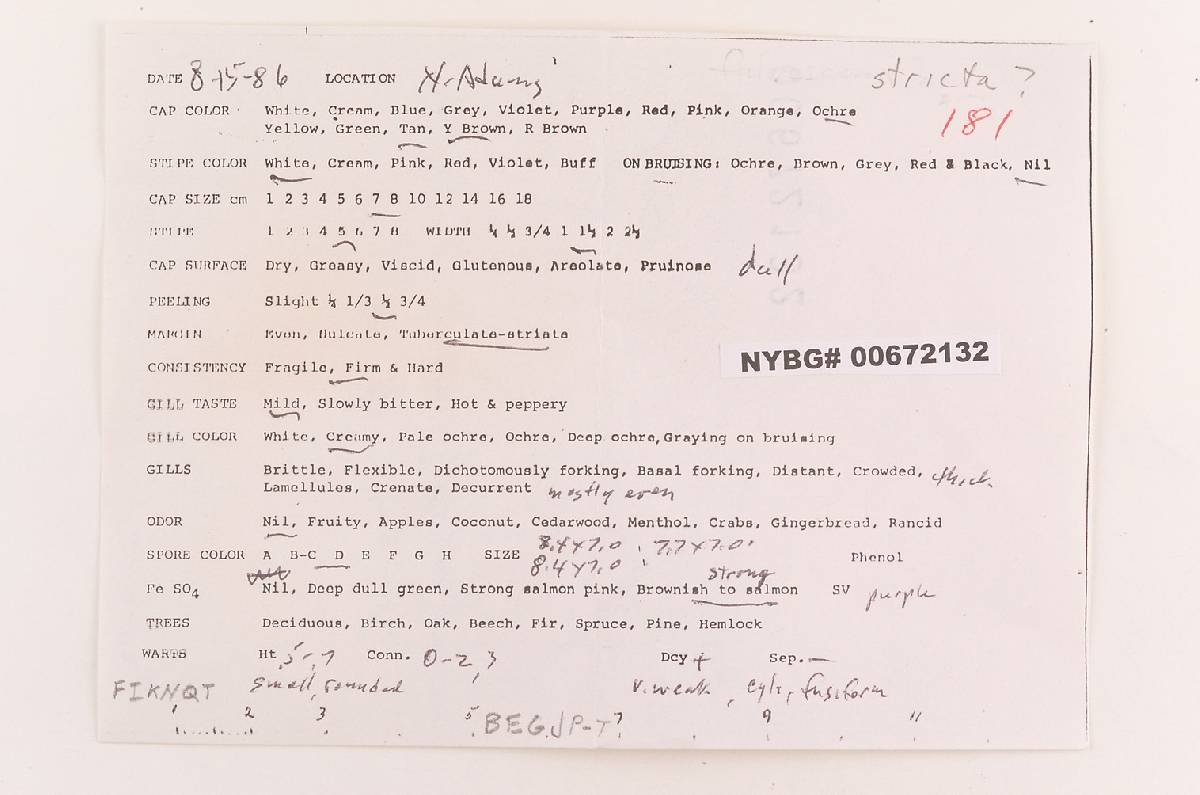 DATE 8-15-86 LOCATION N. Adams stricta?
CAP COLOR White, Cream, Blue, Grey, Violet, Purple, Red, Pink, Orange, Ochre 181
Yellow, Green, Tan, Y Brown, R Brown
STIPE COLOR White, Cream, Pink, Red, Violet, Buff ON BRUISING: Ochre, Brown, Grey, Red & Black, Nil
CAP SIZE cm 1 2 3 4 5 6 7 8 10 12 14 16 18
STIPE 1 2 3 4 5 6 7 8 WIDTH ¼ ½ 3/4 1 1½ 2 2½
CAP SURFACE Dry, Greasy, Viscid, Glutenous, Areolate, Pruinose dull
PEELING Slight ¼ 1/3 ½ 3/4
MARGIN Even, Sulcate, Tuberculate-striate
NYBG# 00672132
CONSISTENCY Fragile, Firm & Hard
GILL TASTE Mild, Slowly bitter, Hot & peppery
GILL COLOR White, Creamy, Pale ochre, Ochre, Deep ochre, Graying on bruising
GILLS Brittle, Flexible, Dichotomously forking, Basal forking, Distant, Crowded, thick
Lamellules, Crenate, Decurrent mostly even
ODOR Nil, Fruity, Apples, Coconut, Cedarwood, Menthol, Crabs, Gingerbread, Rancid
SPORE COLOR A B-C D E F G H SIZE 8.4x7.0, 7.7x7.0, Phenol
8.4x7.0 strong
Fe SO4 Nil, Deep dull green, Strong salmon pink, Brownish to salmon SV purple
TREES Deciduous, Birch, Oak, Beech, Fir, Spruce, Pine, Hemlock
WARTS Ht .5-.7 Conn. 0-2,3 Dcy + Sep. —
FIKNQT small, rounded v. weak, cyl, fusiform
1 2 3 5 BEGJP-T 7 9 11